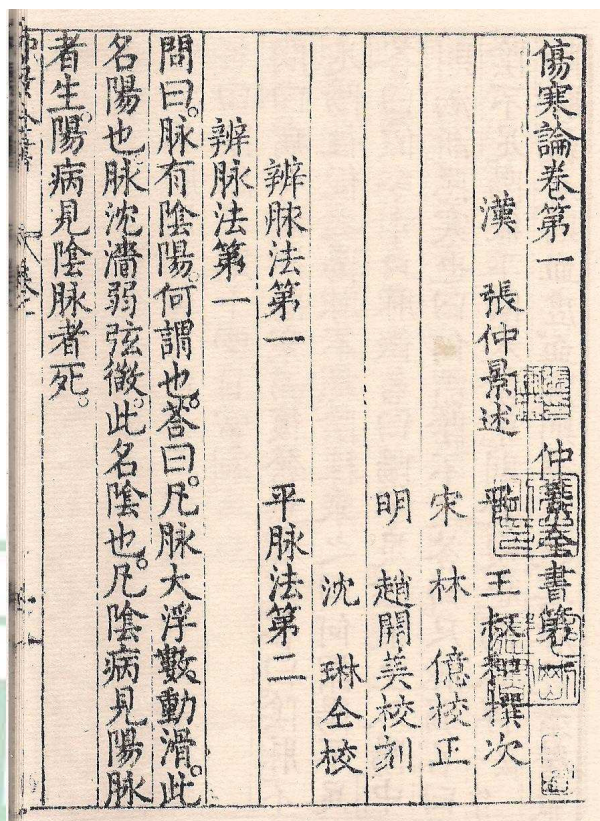 傷寒論卷第一 仲景全書第一
漢 張仲景述 晉 王叔和撰次
宋 林 億校正
明 趙開美校刻
沈 琳仝校
辨脉法第一 平脉法第二
辨脉法第一
問曰。脉有陰陽。何謂也。荅曰。凡脉大浮數動滑。此
名陽也脉沈濇弱弦微。此名陰也。凡陰病見陽脉
者生。陽病見陰脉者死。